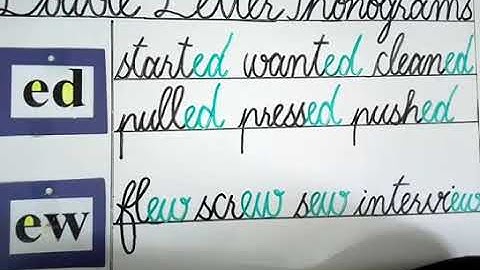 Double Letter Phonograms
ed
started wanted cleaned
pulled pressed pushed
ew
flew screw sew interview